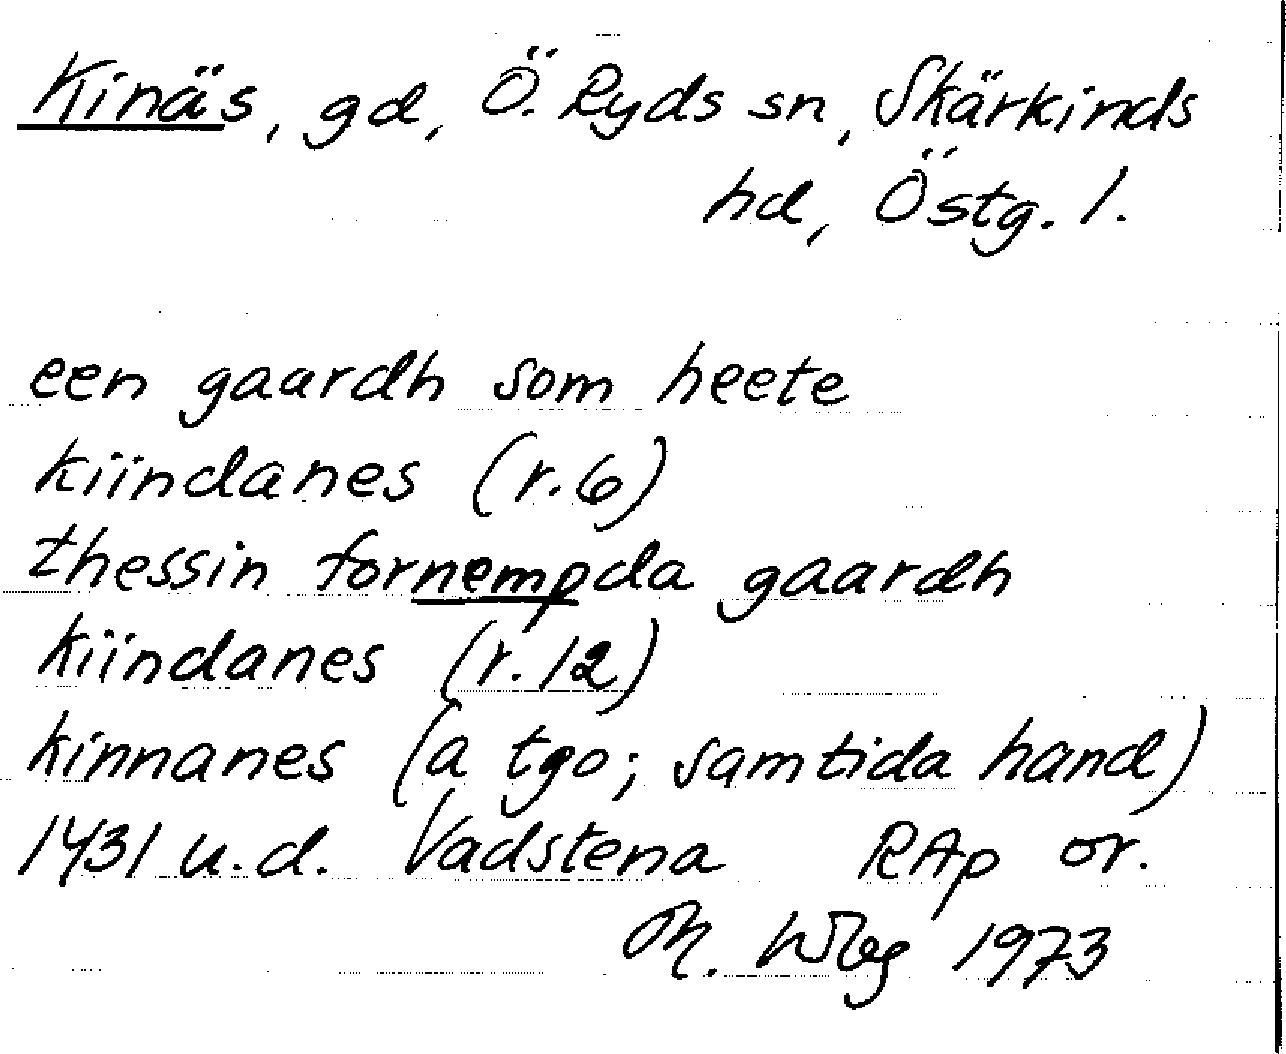 Kinäs, gd, Ö. Ryds sn, Skärkinds
hd, Östg. l.
een gaardh som heete
kiindanes (r.6)
thessin fornempda gaardh
kiindanes (r.12)
kinnanes (a tgo; samtida hand)
1431 u.d. Vadstena RAp or.
M. Wbg 1973